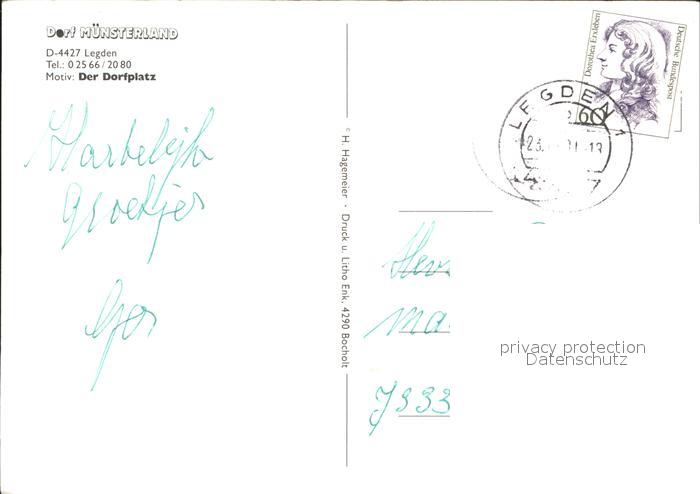 Dorf MÜNSTERLAND
D-4427 Legden
Tel.: 0 25 66 / 20 80
Motiv: Der Dorfplatz
Hartelijk
Groetjes
© H. Hagemeier · Druck u. Litho Enk. 4290 Bocholt
Dorothea Erxleben
Deutsche Bundespost
60
LEGDEN 1
Ma.
privacy protection
Datenschutz
7333